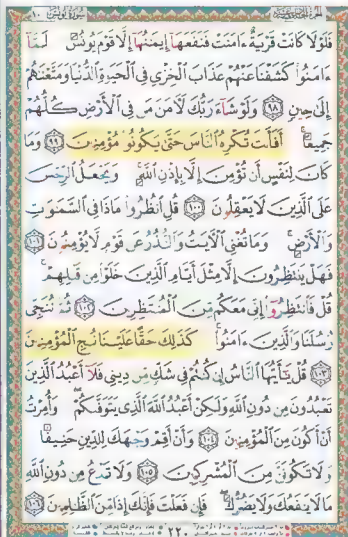 سورة يونس ١٠
فَلَوْلَا كَانَتْ قَرْيَةٌ ءَامَنَتْ فَنَفَعَهَا إِيمَٰنُهَا إِلَّا قَوْمَ يُونُسَ لَمَّا
ءَامَنُوا۟ كَشَفْنَا عَنْهُمْ عَذَابَ الْخِزْيِ فِي الْحَيَوٰةِ الدُّنْيَا وَمَتَّعْنَٰهُمْ
إِلَىٰ حِينٍ ٩٨ وَلَوْ شَآءَ رَبُّكَ لَءَامَنَ مَن فِي الْأَرْضِ كُلُّهُمْ
جَمِيعًا أَفَأَنتَ تُكْرِهُ النَّاسَ حَتَّىٰ يَكُونُوا۟ مُؤْمِنِينَ ٩٩ وَمَا
كَانَ لِنَفْسٍ أَن تُؤْمِنَ إِلَّا بِإِذْنِ اللَّهِ وَيَجْعَلُ الرِّجْسَ
عَلَى الَّذِينَ لَا يَعْقِلُونَ ١٠٠ قُلِ انظُرُوا۟ مَاذَا فِي السَّمَٰوَٰتِ
وَالْأَرْضِ وَمَا تُغْنِي الْءَايَٰتُ وَالنُّذُرُ عَن قَوْمٍ لَّا يُؤْمِنُونَ ١٠١
فَهَلْ يَنتَظِرُونَ إِلَّا مِثْلَ أَيَّامِ الَّذِينَ خَلَوْا۟ مِن قَبْلِهِمْ
قُلْ فَانتَظِرُوٓا۟ إِنِّي مَعَكُم مِّنَ الْمُنتَظِرِينَ ١٠٢ ثُمَّ نُنَجِّي
رُسُلَنَا وَالَّذِينَ ءَامَنُوا۟ كَذَٰلِكَ حَقًّا عَلَيْنَا نُنجِ الْمُؤْمِنِينَ
١٠٣ قُلْ يَٰٓأَيُّهَا النَّاسُ إِن كُنتُمْ فِي شَكٍّ مِّن دِينِي فَلَآ أَعْبُدُ الَّذِينَ
تَعْبُدُونَ مِن دُونِ اللَّهِ وَلَٰكِنْ أَعْبُدُ اللَّهَ الَّذِي يَتَوَفَّىٰكُمْ وَأُمِرْتُ
أَنْ أَكُونَ مِنَ الْمُؤْمِنِينَ ١٠٤ وَأَنْ أَقِمْ وَجْهَكَ لِلدِّينِ حَنِيفًا
وَلَا تَكُونَنَّ مِنَ الْمُشْرِكِينَ ١٠٥ وَلَا تَدْعُ مِن دُونِ اللَّهِ
مَا لَا يَنفَعُكَ وَلَا يَضُرُّكَ فَإِن فَعَلْتَ فَإِنَّكَ إِذًا مِّنَ الظَّٰلِمِينَ ١٠٦
٢٢٠